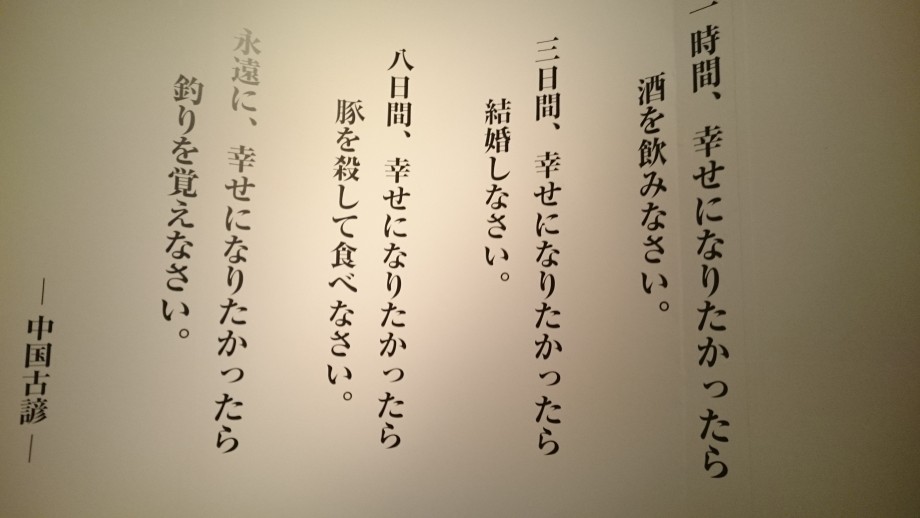 一時間、幸せになりたかったら
酒を飲みなさい。
三日間、幸せになりたかったら
結婚しなさい。
八日間、幸せになりたかったら
豚を殺して食べなさい。
永遠に、幸せになりたかったら
釣りを覚えなさい。
―中国古諺―